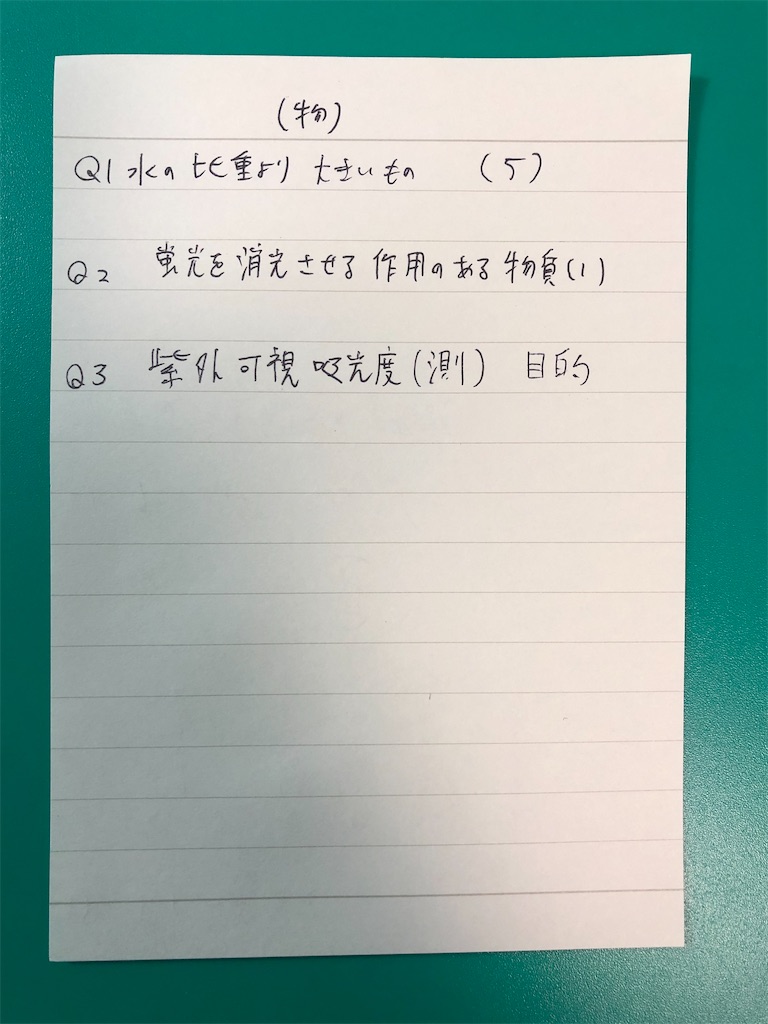 (物)
Q1 水の比重より 大きいもの (5)
Q2 蛍光を消光させる作用のある物質(1)
Q3 紫外可視吸光度(測) 目的